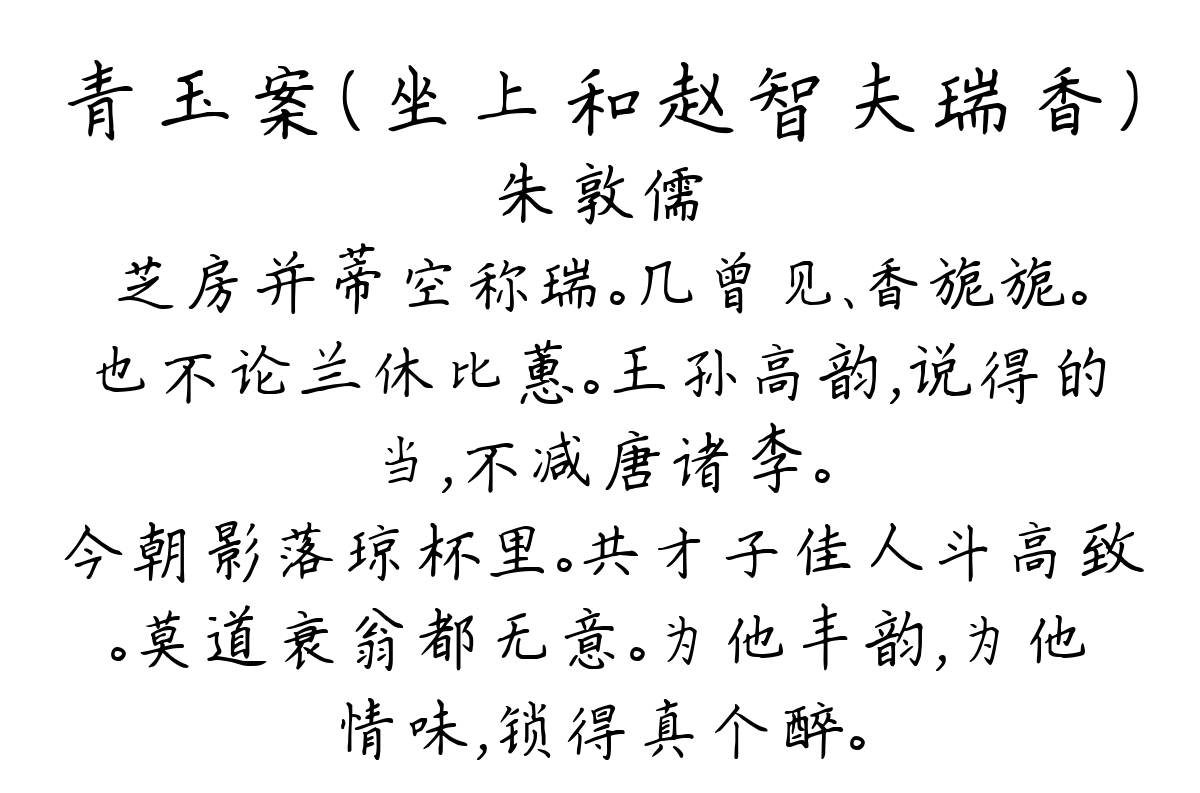 青玉案(坐上和赵智夫瑞香)
朱敦儒
芝房并蒂空称瑞。几曾见、香旎旎。
也不论兰休比蕙。王孙高韵,说得的
当,不减唐诸李。
今朝影落琼杯里。共才子佳人斗高致
。莫道衰翁都无意。为他丰韵,为他
情味,锁得真个醉。